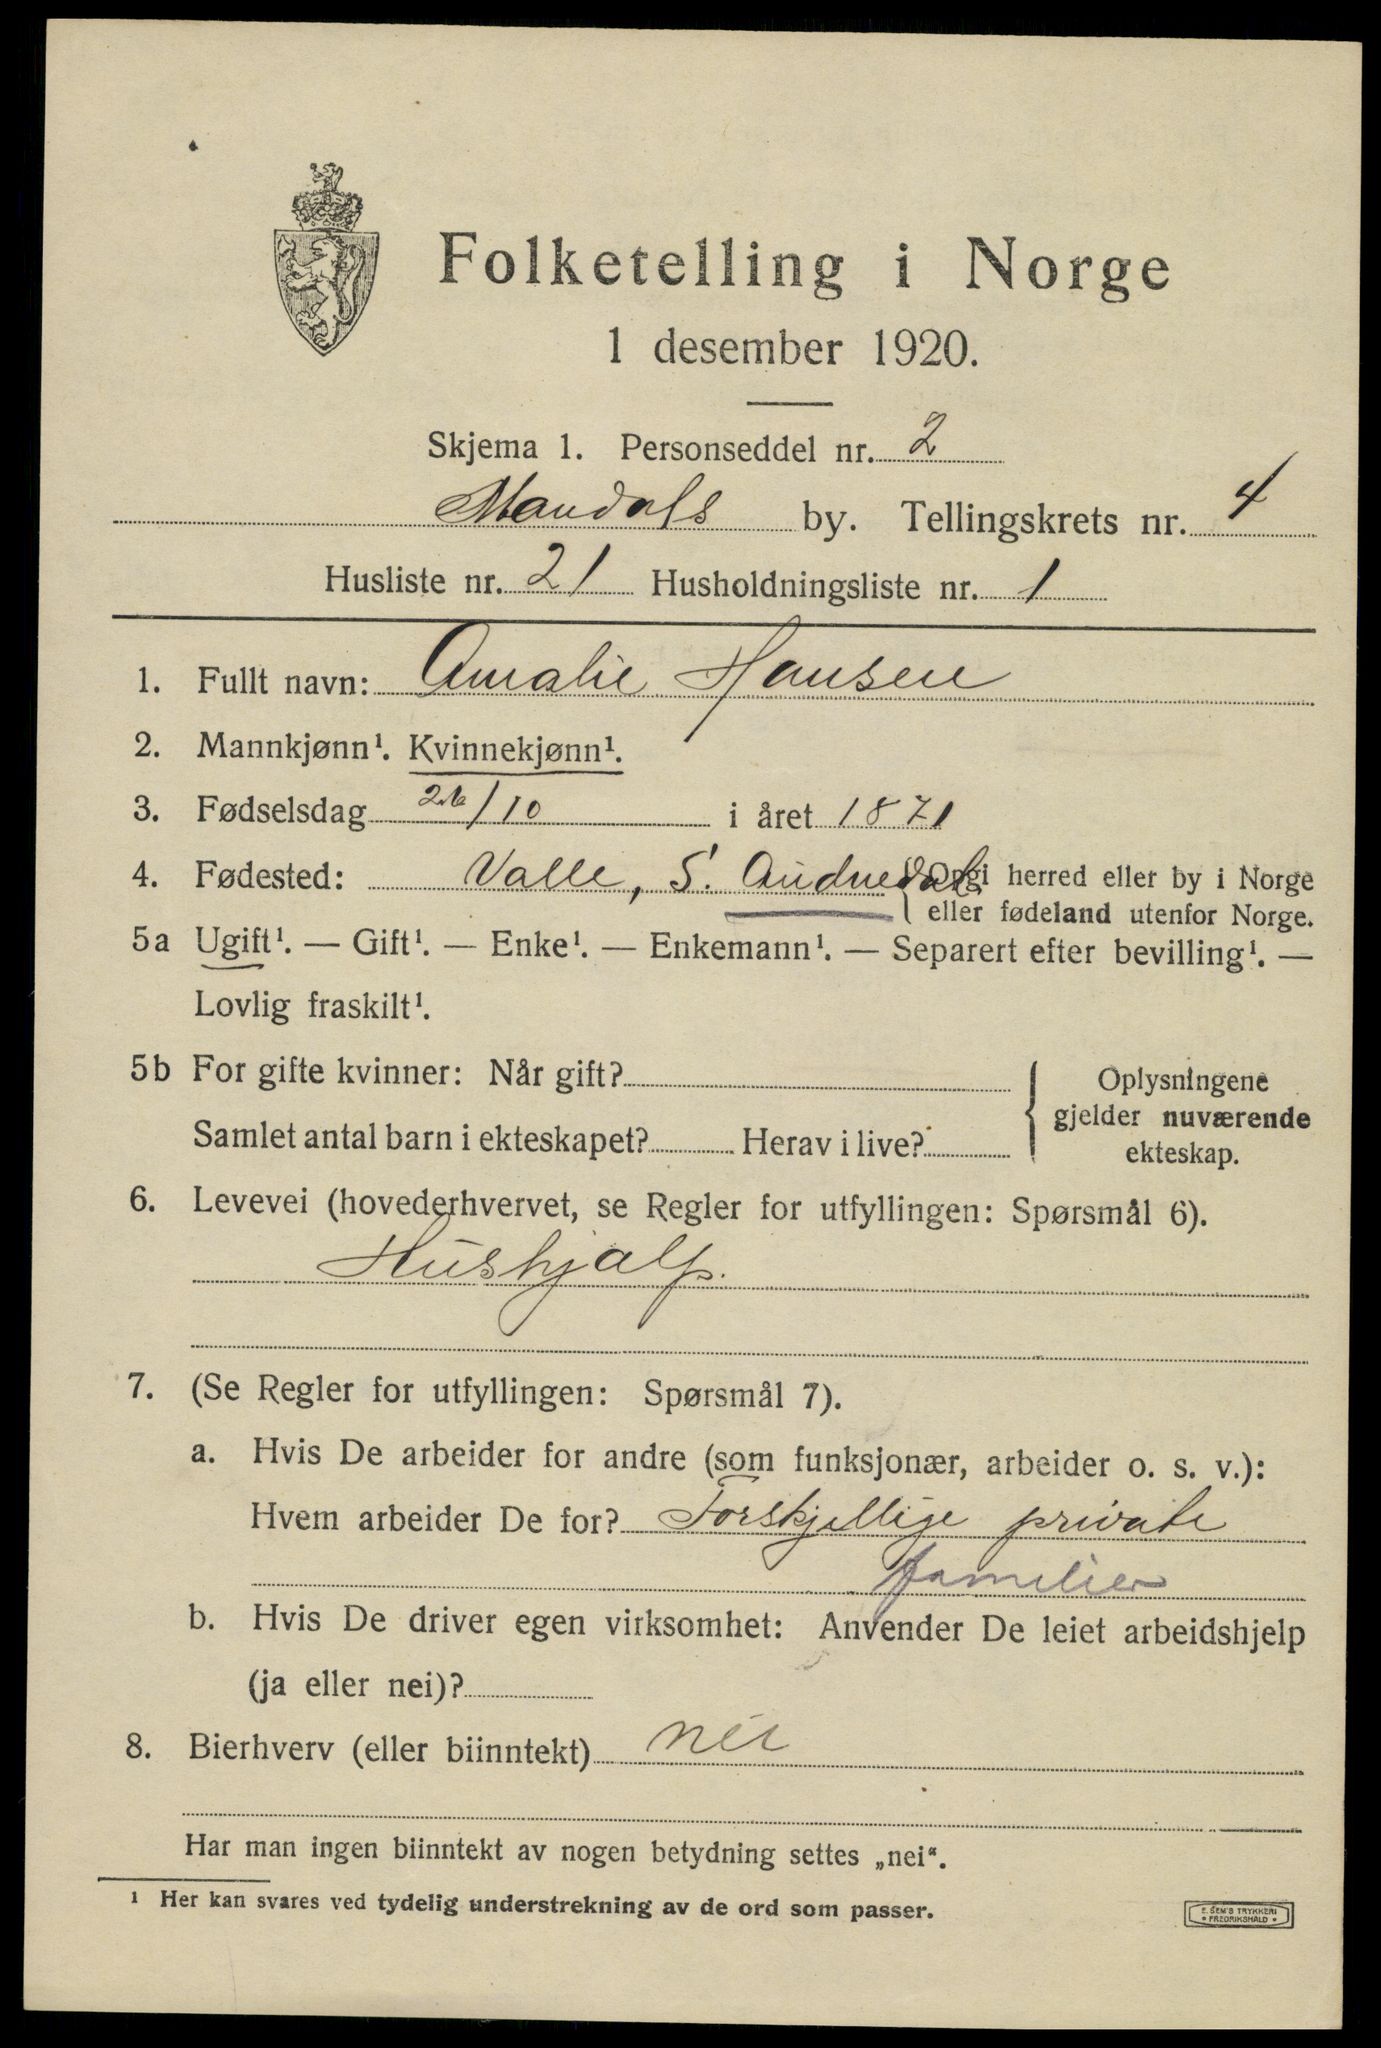 Folketelling i Norge
1 desember 1920.
Skjema 1. Personseddel nr. 2
Mandals by. Tellingskrets nr. 4
Husliste nr. 21 Husholdningsliste nr. 1
1. Fullt navn: Amalie Hansen
2. Mannkjønn¹. Kvinnekjønn¹.
3. Fødselsdag 26/10 i året 1871
4. Fødested: Valle, S. Audnedal { Opgi herred eller by i Norge
eller fødeland utenfor Norge.
5a Ugift¹. — Gift¹. — Enke¹. — Enkemann¹. — Separert efter bevilling¹. —
Lovlig fraskilt¹.
5b For gifte kvinner: Når gift?
Samlet antal barn i ekteskapet? Herav i live?
{ Oplysningene
gjelder nuværende
ekteskap.
6. Levevei (hovederhvervet, se Regler for utfyllingen: Spørsmål 6).
Hushjalp.
7. (Se Regler for utfyllingen: Spørsmål 7).
a. Hvis De arbeider for andre (som funksjonær, arbeider o. s. v.):
Hvem arbeider De for? Forskjallige private
familier
b. Hvis De driver egen virksomhet: Anvender De leiet arbeidshjelp
(ja eller nei)?
8. Bierhverv (eller biinntekt) nei
Har man ingen biinntekt av nogen betydning settes „nei“.
¹ Her kan svares ved tydelig understrekning av de ord som passer.
E. SEM'S TRYKKERI
• FREDRIKSHALD •